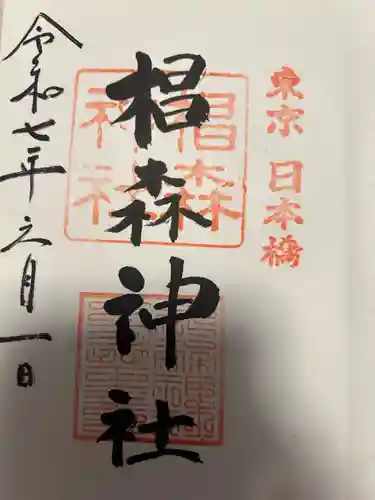 東京 日本橋
椙森神社
椙森神社
令和七年六月一日